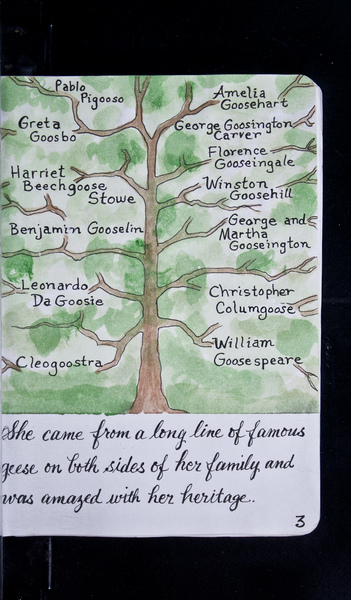 Pablo
Pigooso
Amelia
Goosehart
Greta
Goosbo
George Goosington
Carver
Florence
Gooseingale
Harriet
Beechgoose
Stowe
Winston
Goosehill
Benjamin Gooselin
George and
Martha
Gooseington
Leonardo
Da Goosie
Christopher
Columgoose
Cleogoostra
William
Goosespeare
She came from a long line of famous
geese on both sides of her family and
was amazed with her heritage..
3